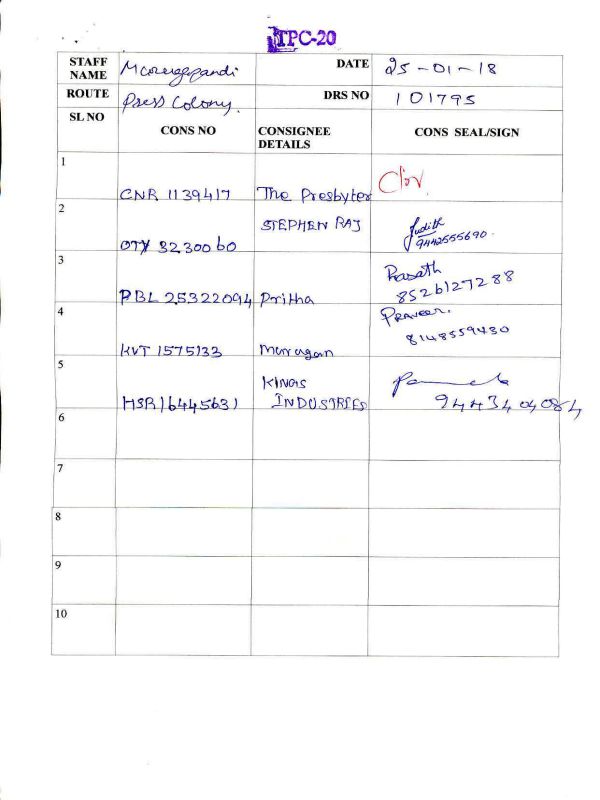 TPC-20
STAFF NAME DATE 25-01-18
ROUTE Press Colony. DRS NO 101795
SL NO CONS NO CONSIGNEE DETAILS CONS SEAL/SIGN
1 CNR 1139417 The Presbyter
2 OTY 3230060 STEPHEN RAJ Judith 9442555690.
3 PBL 25322094 Pritha Prasath 8526127288
4 KVT 1575133 Murugan PRAVEEN. 8148559430
5 HSR 16445631 KINGS INDUSTRIES 9443404084
6
7
8
9
10